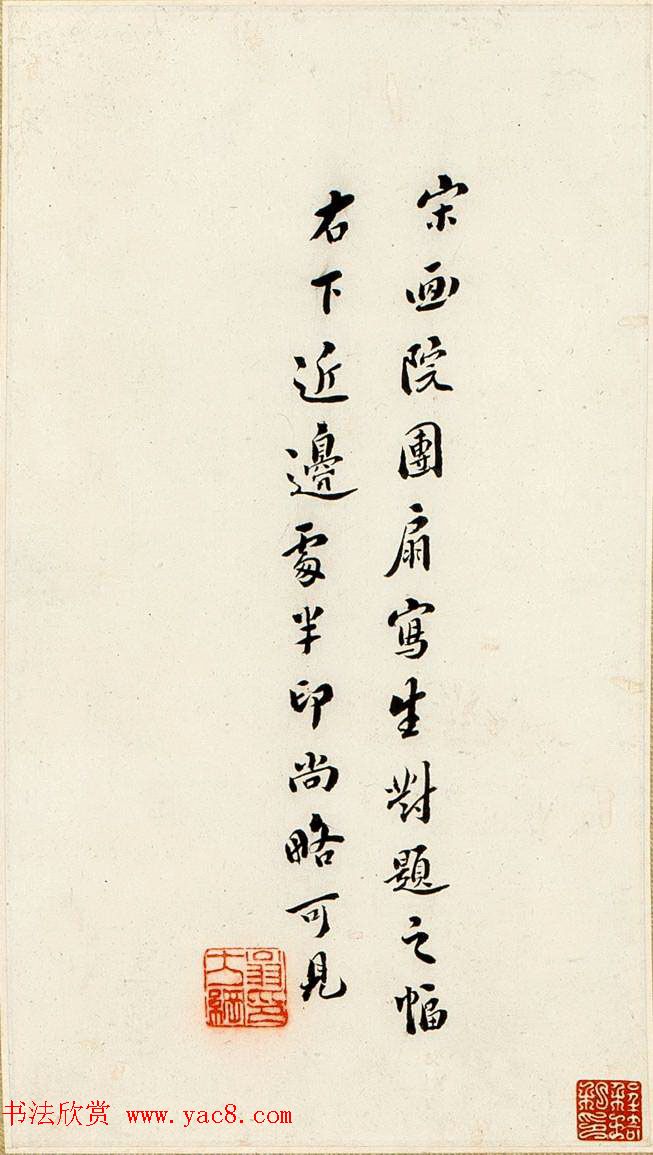 宋画院團扇寫生對題之幅
右下近邊處半印尚略可見
翁印
方綱
书法欣赏 www.yac8.com